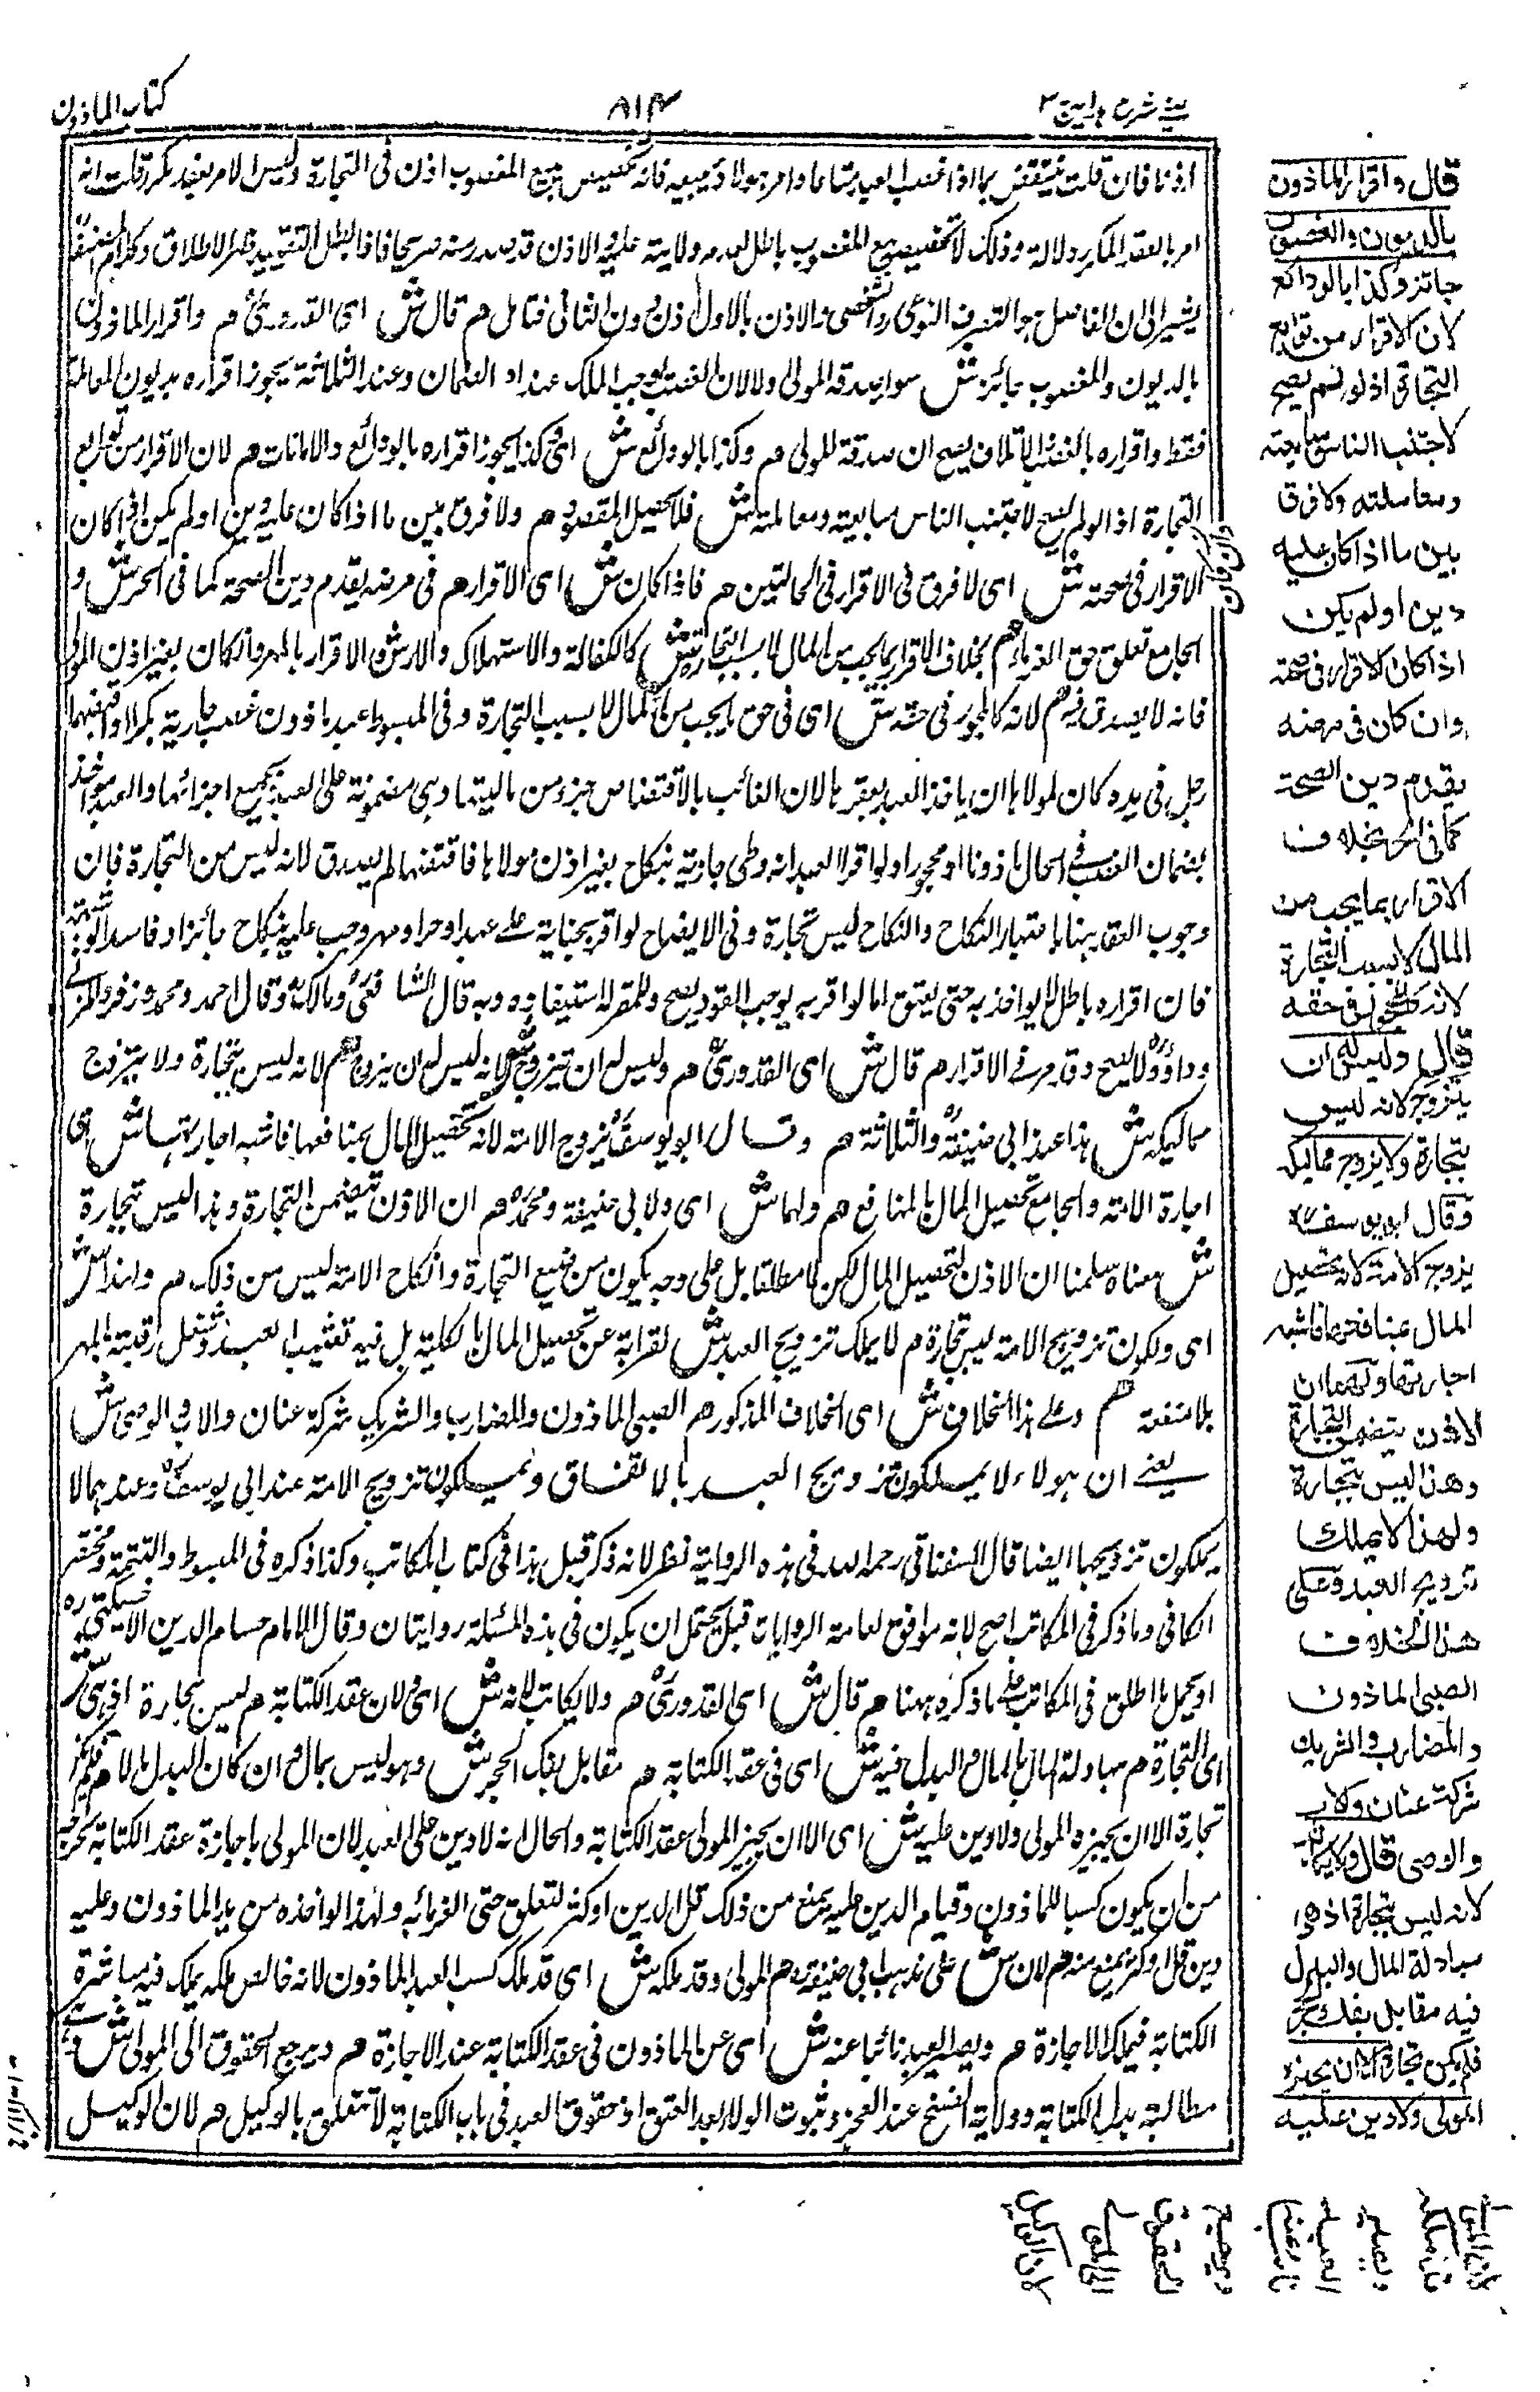 كتاب الماذون
٨١٣
عينى شرح هداية ج ٣
اذنا فان قلت ينتقض بما اذا غصب العبد متاعا وامره مولاه ببيعه فانه تخصيص ببيع المغصوب اذن فى التجارة وليس الامر بعقد مكرر قلت انه
امر بالعقد المكرر دلالة وذلك لان تخصيص بيع المغصوب باطل لعدم ولايته عليه والاذن قد صدر منه صريحا فاذا بطل التقييد ظهر الاطلاق وكلام المصنف
يشير الى ان الفاصل هو التصرف النوعى والشخصى والاذن بالاول اذن دون الثانى فتامل هم قال ش اى القدورى هم واقرار الماذون
بالديون والمغصوب جائز ش سواء صدقه المولى او لا لان الغصب يوجب الملك عند اداء الضمان وعند الثلاثة يجوز اقراره بديون المعاملة
فقط واقراره بالغصب والاتلاف يصح ان صدقه المولى هم وكذا بالودائع ش اى وكذا يجوز اقراره بالودائع والامانات هم لان الاقرار من توابع
التجارة اذ لو لم يصح لاجتنب الناس مبايعته ومعاملته ش فلا يحصل المقصود هم ولا فرق بين ما اذا كان عليه دين او لم يكن اذا كان
الاقرار فى صحته ش اى لا فرق فى الاقرار فى الحالتين هم فاذا كان ش اى الاقرار هم فى مرضه يقدم دين الصحة كما فى الحر ش و
الجامع تعلق حق الغرماء هم بخلاف الاقرار بما يجب من المال لا بسبب التجارة ش كالكفالة والاستهلاك والارش والاقرار بالمهر واذا كان بغير اذن المولى
فانه لا يصدق فيه هم لانه كالمحجور فى حقه ش اى فى حق ما يجب من المال لا بسبب التجارة وفى المبسوط عبد ماذون غصب جارية بكرا وافتضها
رجل فى يده كان لمولاها ان ياخذ العبد بعقرها لان الفائت بالافتضاض جزء من ماليتها وهى مضمونة على العبد بجميع اجزائها والعبد مواخذ
بضمان الغصب فى الحال ماذونا او محجورا ولو اقر العبد انه وطى جارية بنكاح بغير اذن مولاها فافتضها لم يصدق لانه ليس من التجارة فان
وجوب العقر ههنا باعتبار النكاح والنكاح ليس تجارة وفى الايضاح لو اقر بجناية على عبد او حر او مهر وجب عليه بنكاح جائز او فاسد او شبهة
فان اقراره باطل لا يواخذ به حتى يعتق اما لو اقر به يوجب القود يصح وللمقر له استيفاؤه وبه قال الشافعى ومالك وقال احمد ومحمد وزفر والمزنى
وداؤد لا يصح وقد مر فى الاقرار هم قال ش اى القدورى هم وليس له ان يتزوج ش لانه ليس له ان يتزوج هم لانه ليس بتجارة ولا يزوج
مماليكه ش هذا عند ابى حنيفة والثلاثة هم وقال ابو يوسف يزوج الامة لانه تحصيل المال بمنافعها فاشبه اجارتها ش اى
اجارة الامة والجامع تحصيل المال بالمنافع هم ولهما ش اى ولابى حنيفة ومحمد هم ان الاذن يتضمن التجارة وهذا ليس تجارة
ش معناه سلمنا ان الاذن لتحصيل المال لكن لا مطلقا بل على وجه يكون من صنيع التجارة وانكاح الامة ليس من ذلك هم ولهذا ش
اى ولكون تزويج الامة ليس تجارة هم لا يملك تزويج العبد ش لقرابة عن تحصيل المال بالكلية بل فيه تعييب العبد وشغل رقبته بالمهر
بلا منفعة هم وعلى هذا الخلاف ش اى الخلاف المذكور هم الصبى الماذون والمضارب والشريك شركة عنان والاب والوصى ش
يعنى ان هؤلاء لا يملكون تزويج العبد بالاتفاق ويملكون تزويج الامة عند ابى يوسف وعندهما لا
يملكون تزويجها ايضا قال السغناقى رحمه الله فى هذه الرواية نظر لانه ذكر قبل هذا فى كتاب المكاتب وكذا ذكره فى المبسوط والتتمة ومختصر
الكافى وما ذكر فى المكاتب اصح لانه موافق لعامة الروايات قيل يحتمل ان يكون فى هذه المسئلة روايتان وقال الامام حسام الدين الاخسيكتى ره
او يحمل ما اطلق فى المكاتب على ما ذكره ههنا هم قال ش اى القدورى هم ولا يكاتب لانه ش اى لان عقد الكتابة هم ليس تجارة اذ هى ش
اى التجارة هم مبادلة المال بالمال والبدل فيه ش اى فى عقد الكتابة هم مقابل بفك الحجر ش وهو ليس بمال وان كان البدل مالا هم فلم يكن
تجارة الا ان يجيزه المولى ولا دين عليه ش اى الا ان يجيز المولى عقد الكتابة والحال انه لا دين على العبد لان المولى باجازة عقد الكتابة يخرجه
من ان يكون كسبا للماذون وقيام الدين عليه يمنع من ذلك قل الدين او كثر لتعلق حق الغرماء به ولهذا لو اخذه من يد الماذون وعليه
دين قل او كثر يمنع منه هم لان ش على مذهب ابى حنيفة ره هم المولى وقد ملكه ش اى قد ملك كسب العبد الماذون لانه خالص ملكه يملك فيه مباشرة
الكتابة فيملك الاجازة هم ويصير العبد نائبا عنه ش اى عن الماذون فى عقد الكتابة عند الاجازة هم ويرجع الحقوق الى المولى ش وهى
مطالبة بدل الكتابة وولاية الفسخ عند العجز وثبوت الولاء بعد العتق اذ حقوق العبد فى باب الكتابة لا تتعلق بالوكيل هم لان الوكيل
قال واقرار الماذون
بالديون والغصوب
جائز وكذا بالودائع
لان الاقرار من توابع
التجارة اذ لو لم يصح
لاجتنب الناس مبايعته
ومعاملته ولا فرق
بين ما اذا كان عليه
دين او لم يكن
اذا كان الاقرار فى صحته
وان كان فى مرضه
يقدم دين الصحة
كما فى الحر بخلاف
الاقرار بما يجب من
المال لا بسبب التجارة
لانه كالمحجور فى حقه
قال وليس له ان
يتزوج لانه ليس
بتجارة ولا يزوج مماليكه
وقال ابو يوسف رح
يزوج الامة لانه تحصيل
المال بمنافعها فاشبه
اجارتها ولهما ان
الاذن يتضمن التجارة
وهذا ليس بتجارة
ولهذا لا يملك
تزويج العبد وعلى
هذا الخلاف
الصبى الماذون
والمضارب والشريك
شركة عنان والاب
والوصى قال ولا يكاتب
لانه ليس بتجارة اذ هى
مبادلة المال والبدل
فيه مقابل بفك الحجر
فلم يكن تجارة الا ان يجيزه
المولى ولا دين عليه
لان المولى
قد ملكه
ويصير
العبد
نائبا عنه
ويرجع
الحقوق
الى المولى
لان الوكيل